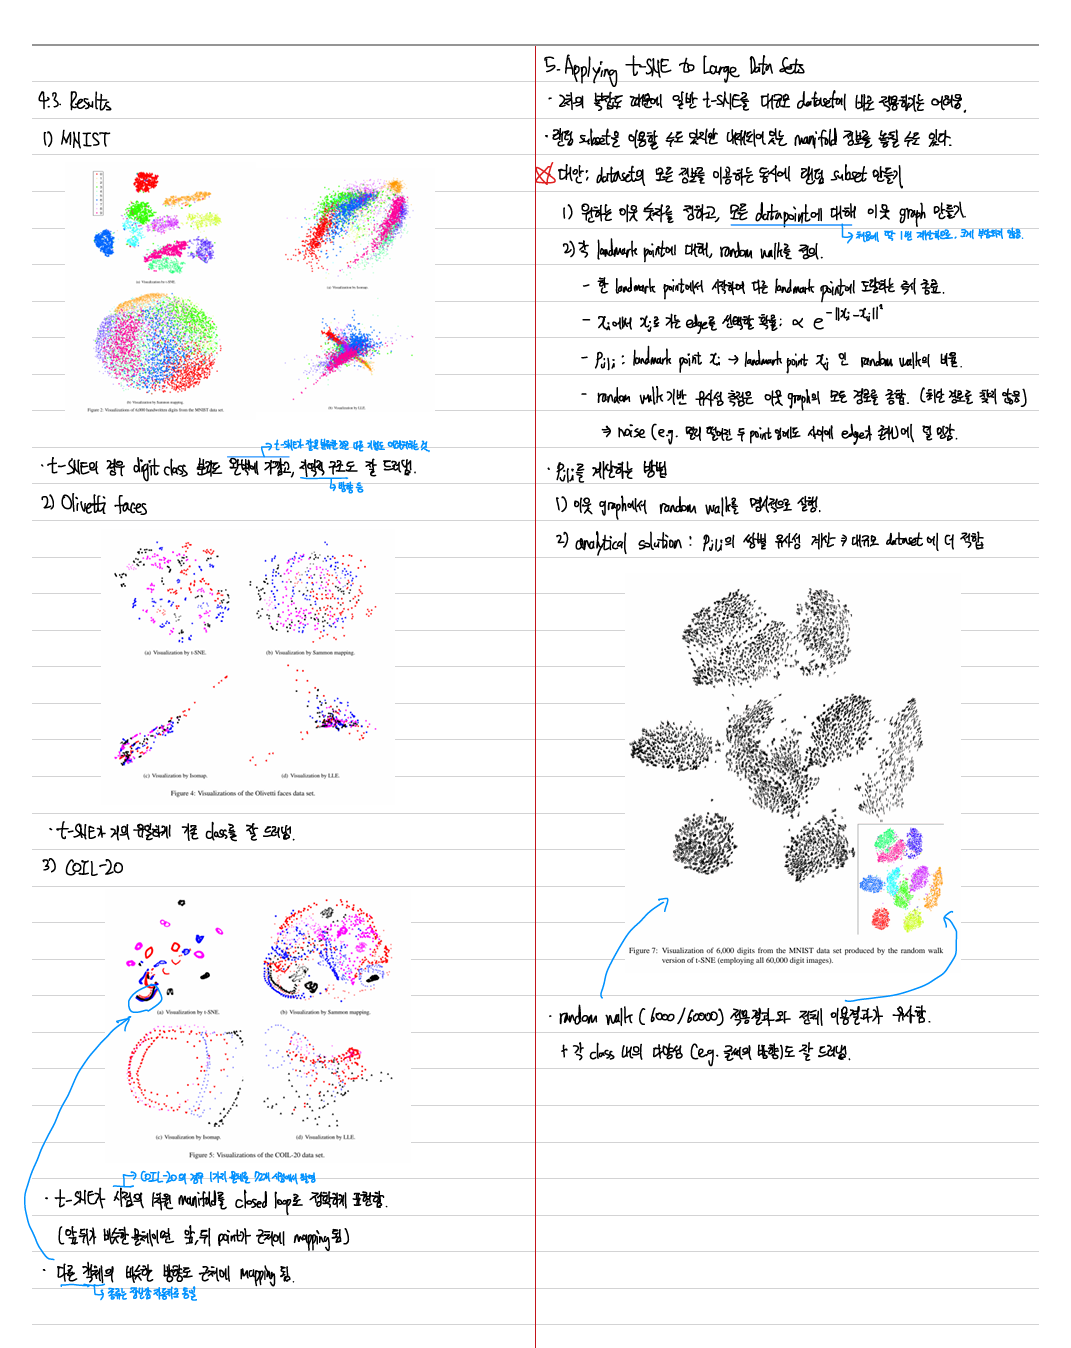 4.3. Results
1) MNIST
(a) Visualization by t-SNE.
(a) Visualization by Isomap.
(b) Visualization by Sammon mapping.
(b) Visualization by LLE.
Figure 2: Visualizations of 6,000 handwritten digits from the MNIST data set.
→ t-SNE가 잘못 분류한 것은 다른 기법도 어려워하는 것
· t-SNE의 경우 digit class 분리도 완벽에 가깝고, 지역적 구조도 잘 드러냄.
→ 방향 등
2) Olivetti faces
(a) Visualization by t-SNE.
(b) Visualization by Sammon mapping.
(c) Visualization by Isomap.
(d) Visualization by LLE.
Figure 4: Visualizations of the Olivetti faces data set.
· t-SNE가 거의 유일하게 기존 class를 잘 드러냄.
3) COIL-20
(a) Visualization by t-SNE.
(b) Visualization by Sammon mapping.
(c) Visualization by Isomap.
(d) Visualization by LLE.
Figure 5: Visualizations of the COIL-20 data set.
→ COIL-20의 경우 1가지 물체를 72개 시점에서 촬영
· t-SNE가 시점의 1차원 manifold를 closed loop로 정확하게 표현함.
(앞뒤가 비슷한 물체이면 앞,뒤 point가 근처에 mapping 됨)
· 다른 객체의 비슷한 방향도 근처에 mapping 됨.
→ 종류는 장난감 자동차로 동일
5. Applying t-SNE to Large Data Sets
· 2차의 복잡도 때문에 일반 t-SNE를 대규모 dataset에 바로 적용하기는 어려움.
· 랜덤 subset을 이용할 수도 있지만 내재되어 있는 manifold 정보를 놓칠 수도 있다.
대안: dataset의 모든 정보를 이용하는 동시에 랜덤 subset 만들기
1) 원하는 이웃 숫자를 정하고, 모든 datapoint에 대해 이웃 graph 만들기
→ 처음에 딱 1번 계산하므로, 크게 부담되지 않음.
2) 각 landmark point에 대해, random walk를 정의.
- 한 landmark point에서 시작하여 다른 landmark point에 도달하는 즉시 종료.
- xi에서 xj로 가는 edge를 선택할 확률: ∝ e^-||xi-xj||²
- Pj|i : landmark point xi → landmark point xj 인 random walk의 비율
- random walk 기반 유사성 측정은 이웃 graph의 모든 경로를 종합. (최단 경로를 찾지 않음)
⇒ noise (e.g. 멀리 떨어진 두 point 임에도 사이에 edge가 존재)에 덜 민감.
· Pj|i를 계산하는 방법
1) 이웃 graph에서 random walk를 명시적으로 실행.
2) analytical solution : Pj|i의 쌍별 유사성 계산 → 대규모 dataset에 더 적합
Figure 7: Visualization of 6,000 digits from the MNIST data set produced by the random walk
version of t-SNE (employing all 60,000 digit images).
· random walk (6000/60000) 적용결과와 전체 이용결과가 유사함.
+ 각 class 내의 다양성 (e.g. 글씨의 방향)도 잘 드러냄.